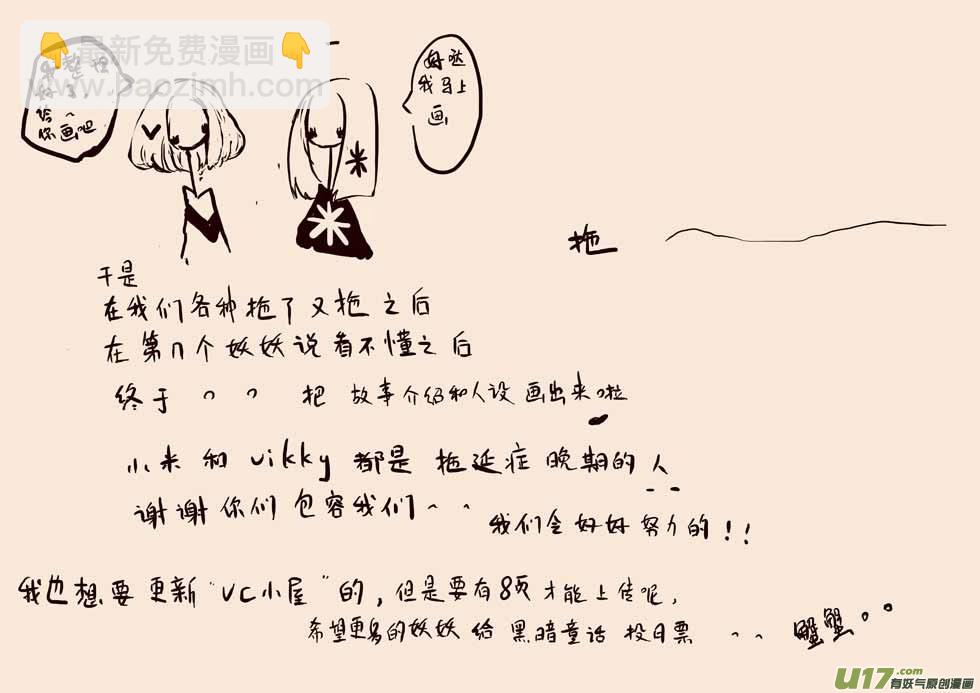 👇最新免费漫画👇
www.baozimh.com
我整理
好了，
给
你画吧
好哒
我马上
画
拖
于是
在我们各种拖了又拖之后
在第n个妖妖说看不懂之后
终于 ^ ^ 把 故事介绍和人设画出来啦
小米和vikky都是拖延症晚期的人
- -
谢谢你们包容我们^ ^
我们会好好努力的！！
我也想要更新“VC小屋”的，但是要有8页才能上传呢，
希望更多的妖妖给黑暗童话投月票 ^ ^ 蟹蟹。。
U17.com
有妖气原创漫画